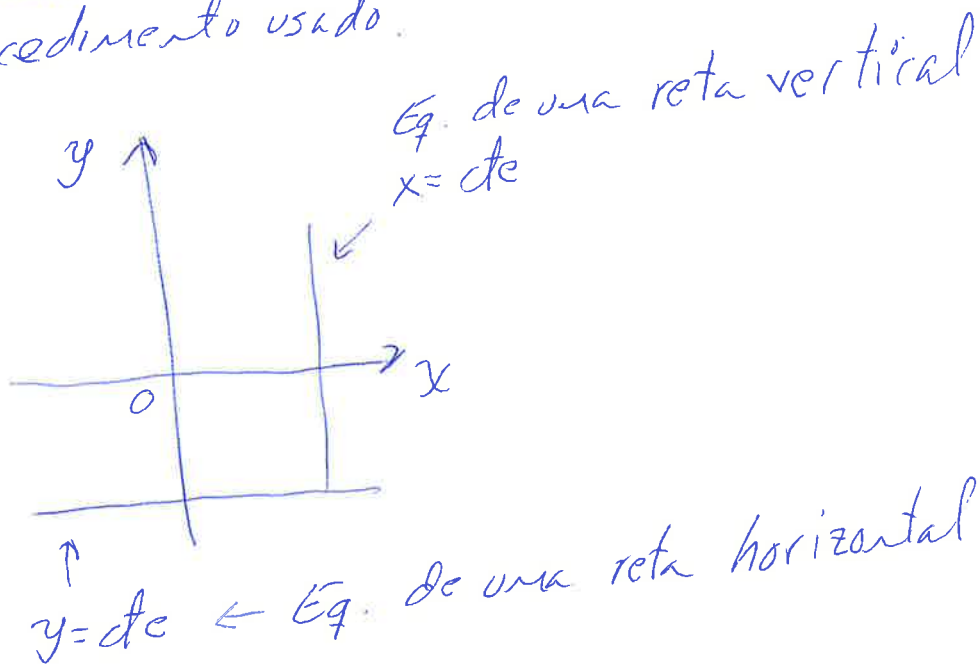 cedimento usado.
Eq. de uma reta vertical
x = cte
y
x
0
y = cte ← Eq. de uma reta horizontal